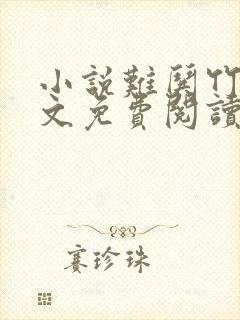 小說難哭竹
文免費閱讀
賽珍珠